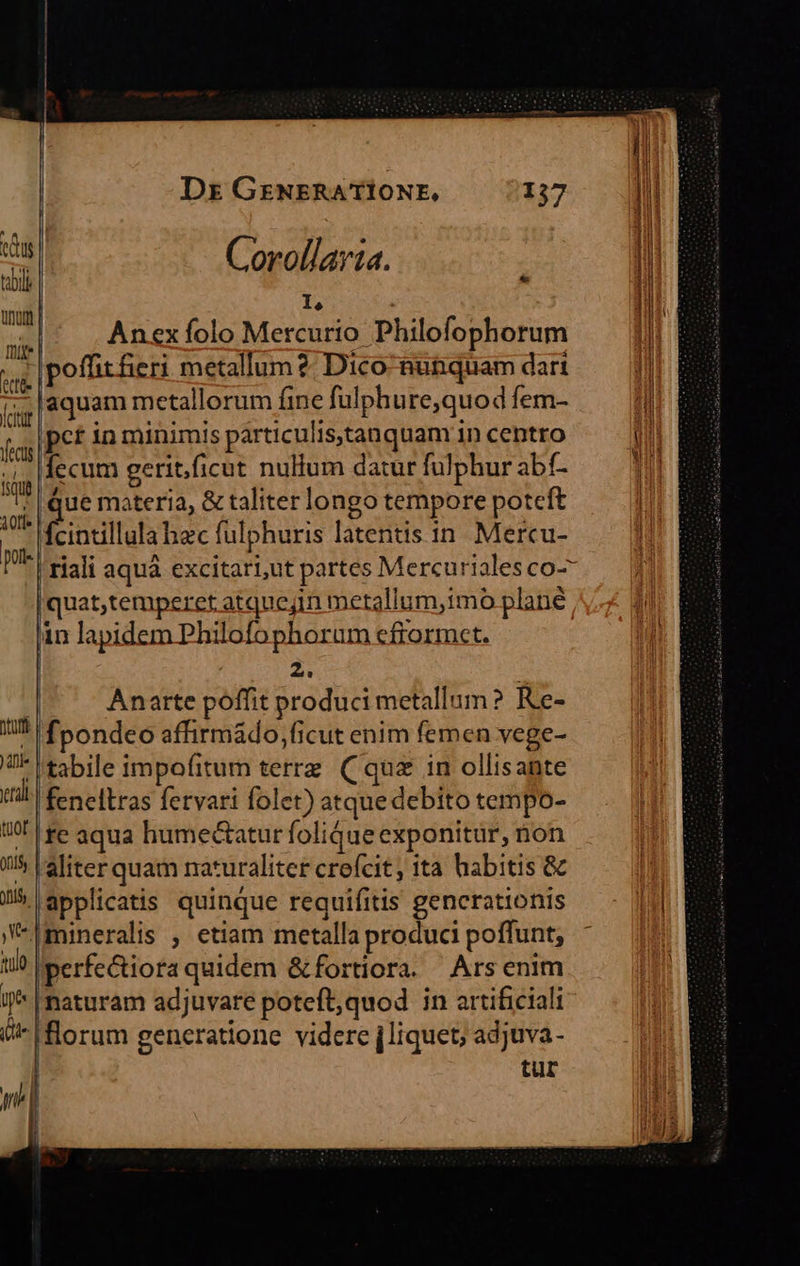 DE GENERATIONE, 137
Corollaria.
1.
An ex ſolo Mercurio Philoſophorum
poſſit fieri metallum? Dico nunquam dari
aquam metallorum ſine ſulphure, quod ſem-
per in minimis particulis, tanquam in centro
ſecum gerit, ſicut nullum datur ſulphur abſ-
que materia, & taliter longo tempore poteſt
ſcintillula hæc ſulphuris latentis in Mercu-
riali aquâ excitari, ut partes Mercuriales co-
quat, temperet atque in metallum, imò planè
in lapidem Philoſophorum efformet.
2.
An arte poſſit produci metallum? Re-
ſpondeo affirmādo, ſicut enim ſemen vege-
tabile impoſitum terræ (quæ in ollis ante
feneſtras ſervari ſolet) atque debito tempo-
re aqua humectatur ſolique exponitur, non
aliter quam naturaliter creſcit, ita habitis &
applicatis quinque requiſitis generationis
mineralis, etiam metalla produci poſſunt,
perfectiora quidem & fortiora. Ars enim
naturam adjuvare poteſt, quod in artificiali
florum generatione videre liquet, adjuva-
tur